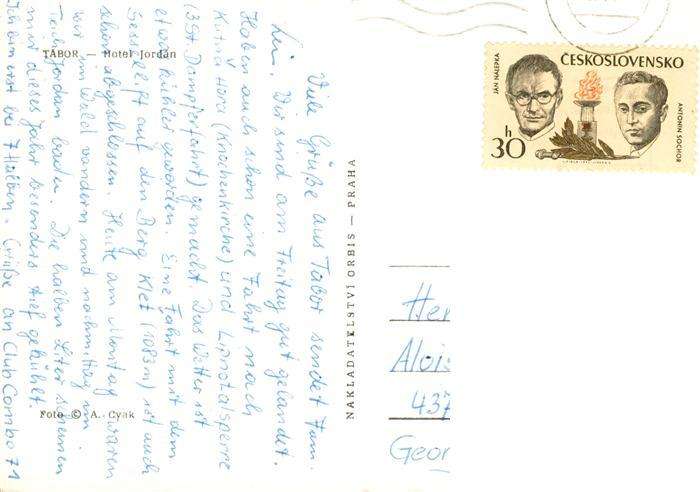 TÁBOR — Hotel Jordán
Viele Grüße aus Tábor sendet Fam.
Lui. Wir sind am Freitag gut gelandet.
Haben auch schon eine Fahrt nach
Kutná Hora (Knochenkirche) und Lipnotalsperre
(3 St. Dampferfahrt) gemacht. Das Wetter ist
etwas kühler geworden. Eine Fahrt mit dem
Sessellift auf den Berg Kleť (1083m) ist auch
schon abgeschlossen. Heute am Montag waren
wir im Wald wandern und nachmittag im
Teich Jordan baden. Die halben Liter scheinen
mir dieses Jahr besonders tief gekühlt.
Ich bin erst bei 7 Halben. Grüße an Club Combo 71
Foto © A. Cvak
NAKLADATELSTVÍ ORBIS — PRAHA
ČESKOSLOVENSKO
JÁN NALEPKA
ANTONÍN SOCHOR
h
30
Her
Alois
437
Geor